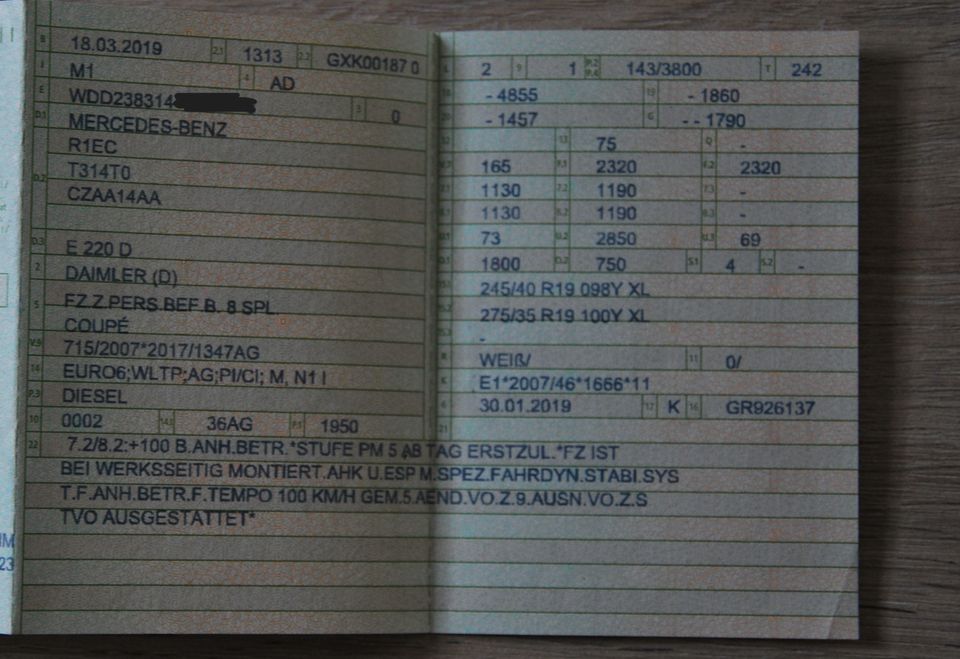 B 18.03.2019 2.1 1313 2.2 GXK00187 0
J M1 4 AD
E WDD238314 3 0
D.1 MERCEDES-BENZ
R1EC
D.2 T314T0
CZAA14AA
D.3 E 220 D
2 DAIMLER (D)
5 FZ.Z.PERS.BEF.B. 8 SPL.
COUPÉ
V.9 715/2007*2017/1347AG
14 EURO6;WLTP;AG;PI/CI; M, N1 I
P.3 DIESEL
10 0002 14.1 36AG P.1 1950
L 2 9 1 P.2 P.4 143/3800 T 242
18 - 4855 19 - 1860
20 - 1457 G - - 1790
12 13 75 Q -
V.7 165 F.1 2320 F.2 2320
7.1 1130 7.2 1190 7.3 -
8.1 1130 8.2 1190 8.3 -
U.1 73 U.2 2850 U.3 69
O.1 1800 O.2 750 S.1 4 S.2 -
15.1 245/40 R19 098Y XL
15.2 275/35 R19 100Y XL
15.3 -
R WEIß/ 11 0/
K E1*2007/46*1666*11
6 30.01.2019 17 K 16 GR926137
21
22 7.2/8.2:+100 B.ANH.BETR.*STUFE PM 5 AB TAG ERSTZUL.*FZ IST
BEI WERKSSEITIG MONTIERT.AHK U.ESP M.SPEZ.FAHRDYN.STABI.SYS
T.F.ANH.BETR.F.TEMPO 100 KM/H GEM.5.AEND.VO.Z.9.AUSN.VO.Z.S
TVO AUSGESTATTET*